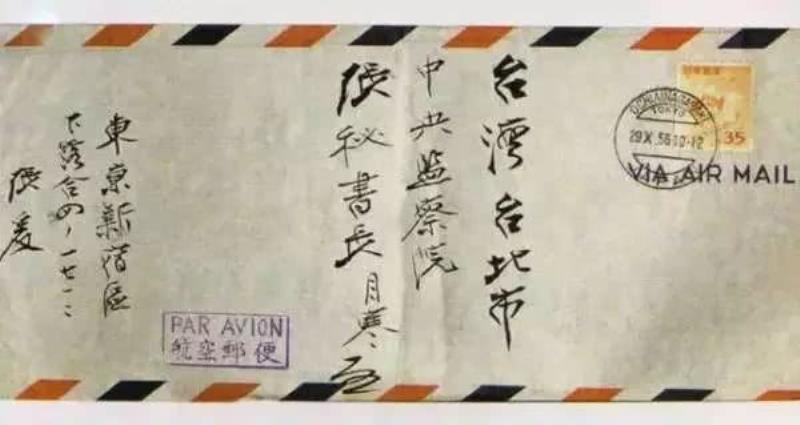 台灣台北市
中央监察院
張秘書長月寒 啟
東京新宿區
下落合四ノ一七一二
張爰
日本郵便
35
TOKYO
29.X.56.10-12
VIA AIR MAIL
PAR AVION
航空郵便